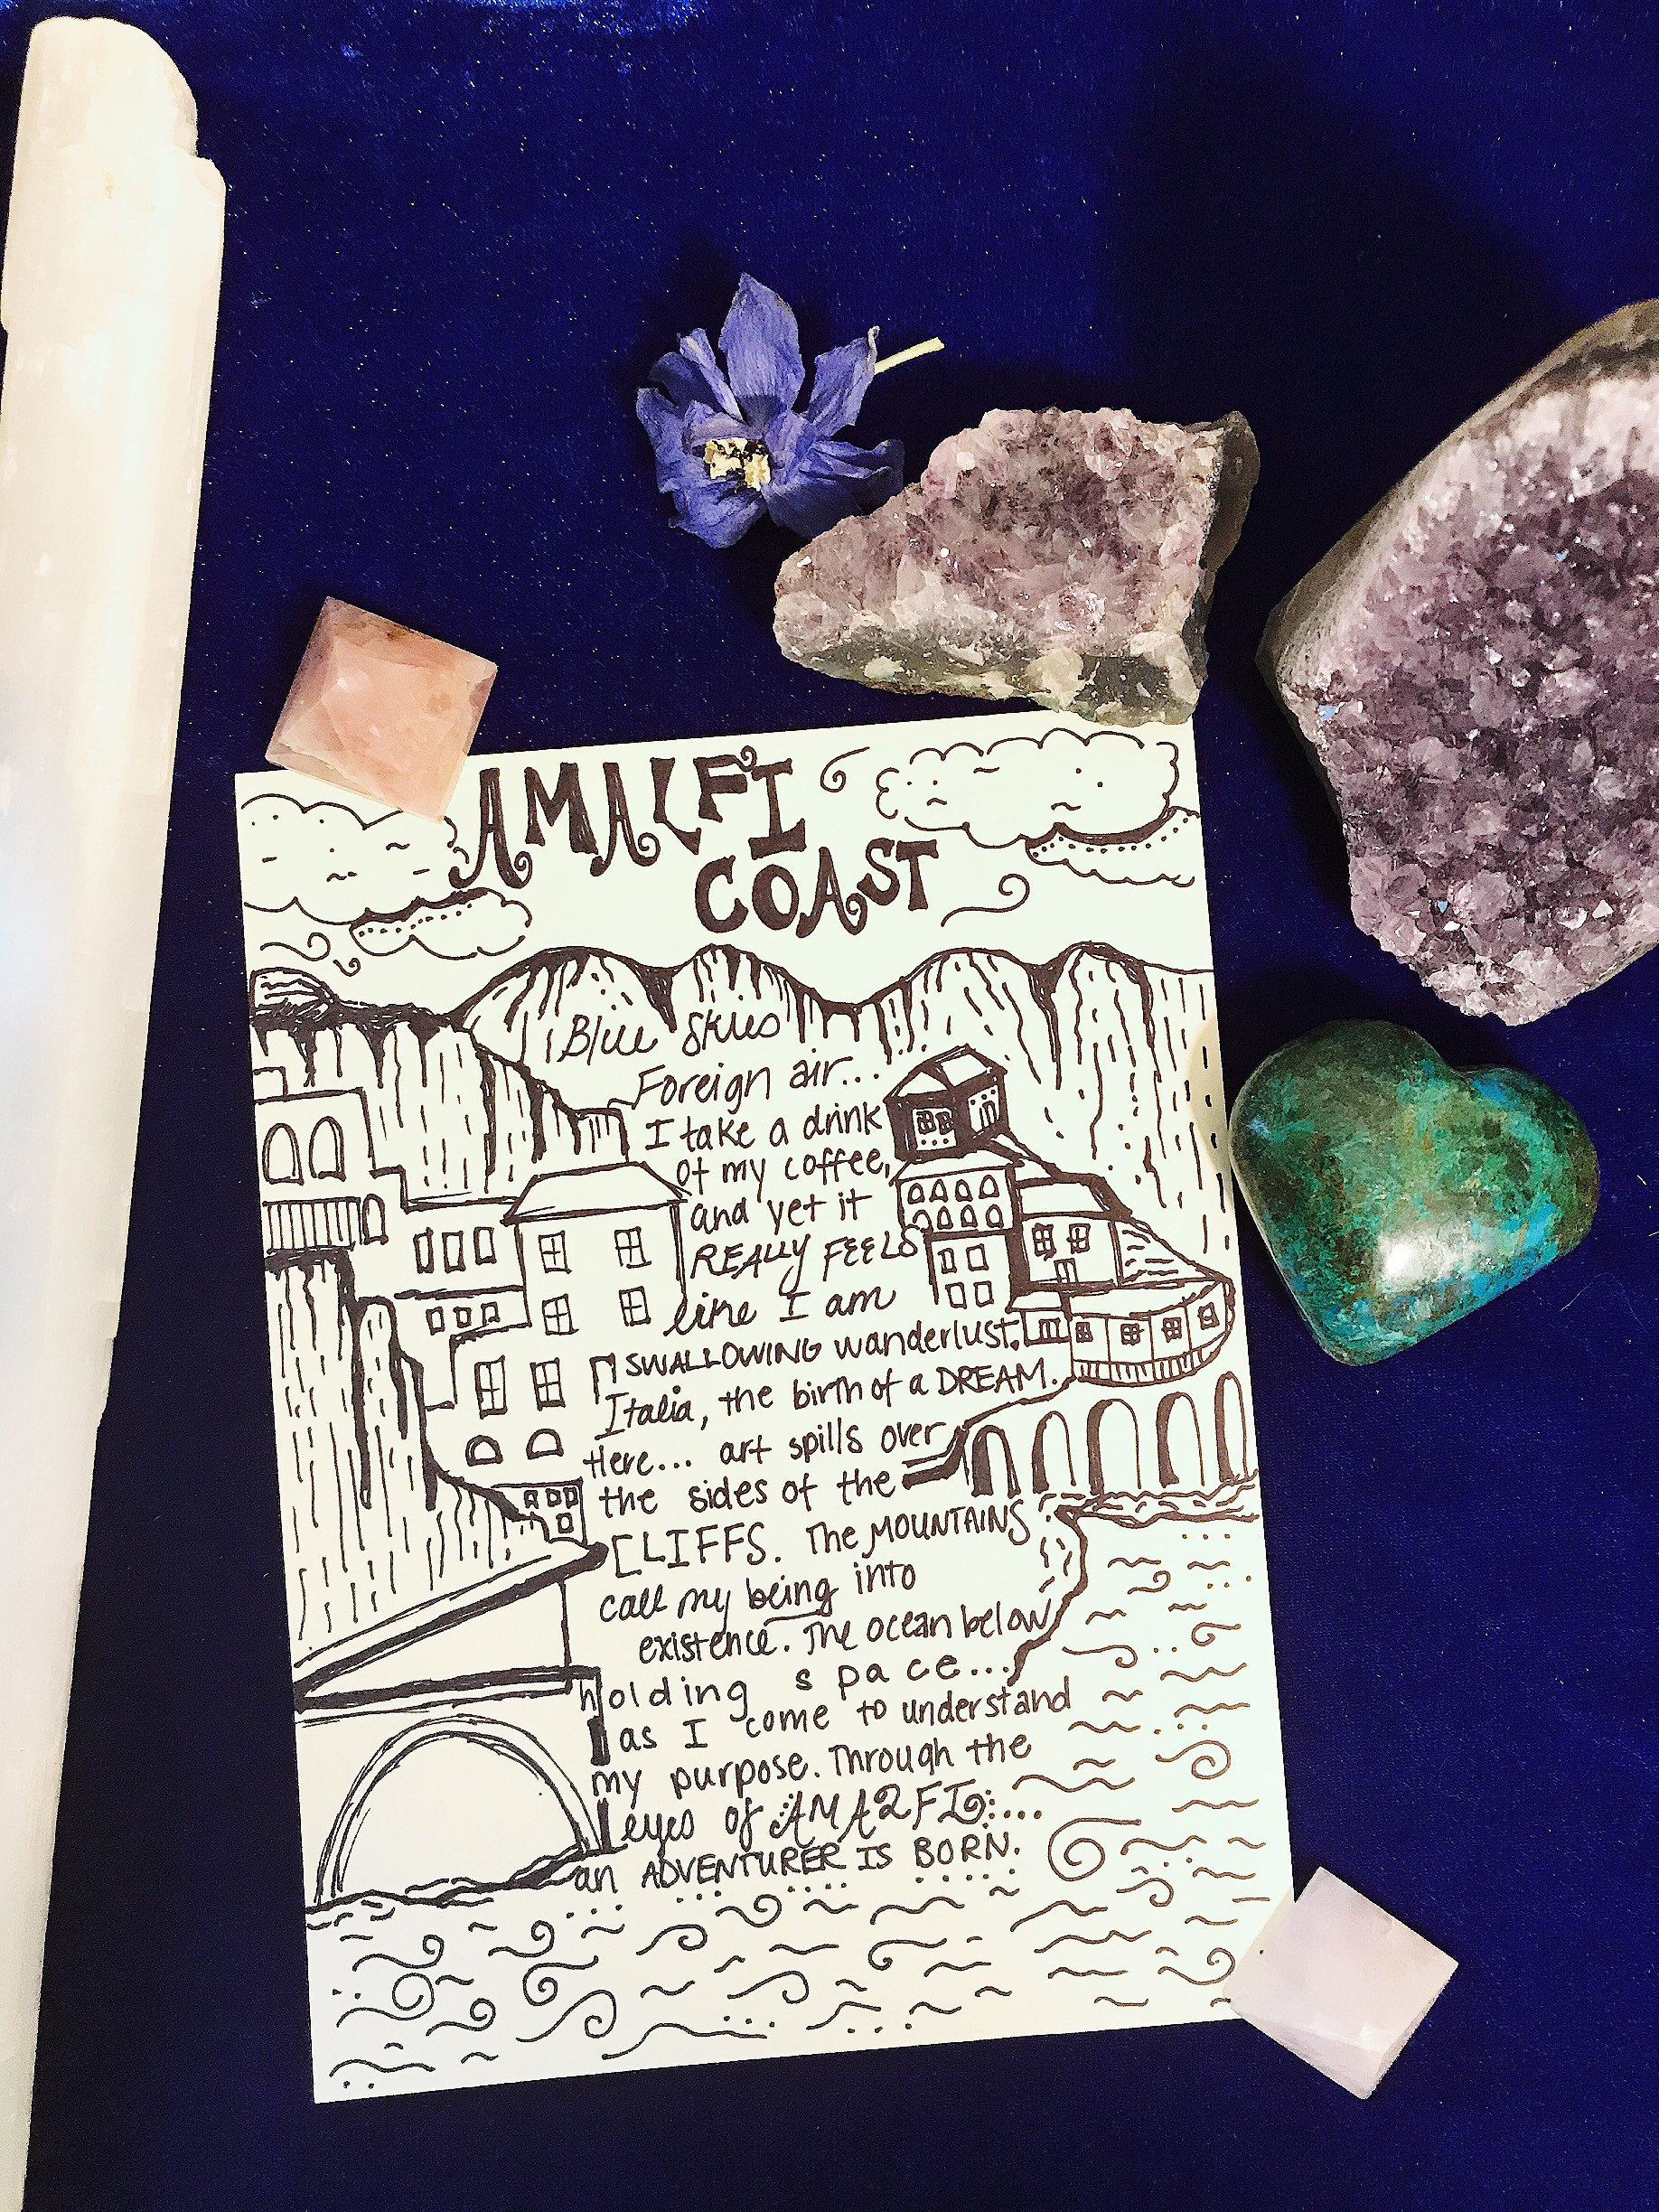 AMALFI
COAST
Blue Skies
Foreign air...
I take a drink
of my coffee,
and yet it
REALLY FEELS
like I am
SWALLOWING wanderlust.
Italia, the birth of a DREAM.
Here... art spills over
the sides of the
CLIFFS. The MOUNTAINS
call my being into
existence. The ocean below
holding space...
as I come to understand
my purpose. Through the
eyes of AMALFI...
an ADVENTURER IS BORN.